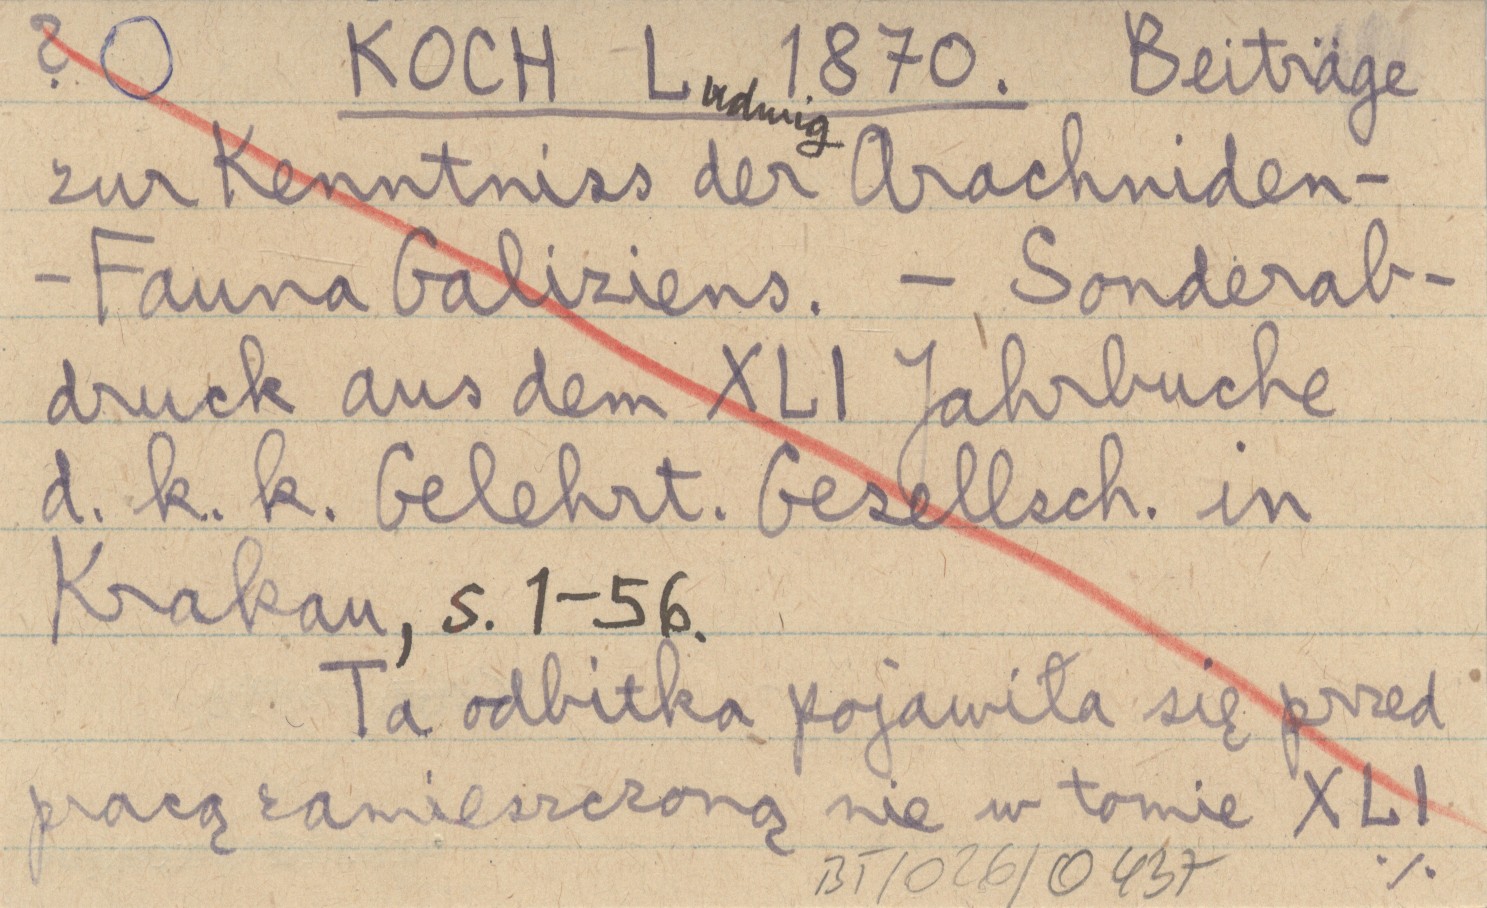 ? KOCH Ludwig 1870. Beiträge
zur Kenntniss der Arachniden-
-Fauna Galiziens. - Sonderab-
druck aus dem XLI Jahrbuche
d. k. k. Gelehrt. Gesellsch. in
Krakau, s. 1-56.
Ta odbitka pojawiła się przed
pracą zamieszczoną nie w tomie XLI
BT/026/0437 ./.